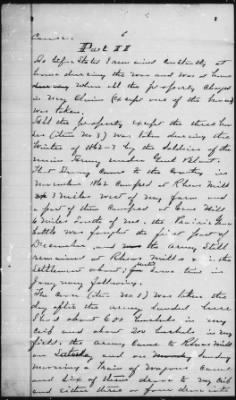 6
Part II
I remained constantly at
home during the war and was at home
when all the property charged
in my Claim except one of the horses
was taken.
All the property except the three hor
ses (item No 3) was taken during the
Winter of 1862-3 by the Soldiers of the
Union Army under Genl Blunt.
That Army Came to the County in
November 1862 Camped at Rheas Mill
3 miles west of my farm and
a part of them Camped at Cane Hill
6 Miles South of me. the Prairie Grove
battle was fought the first part of
December, and the Army Still
remained at Rheas Mill in the
Settlement about until Some time in
January following.
The Corn (item No 1) was taken the
day after the army landed here
I had about 600 bushels in my
crib and about 200 bushels in my
field. the Army Came to Rheas Mill
on Saturday and on Sunday
morning a train of Wagons Came
and Six of them drove to my crib
and three or four drove into